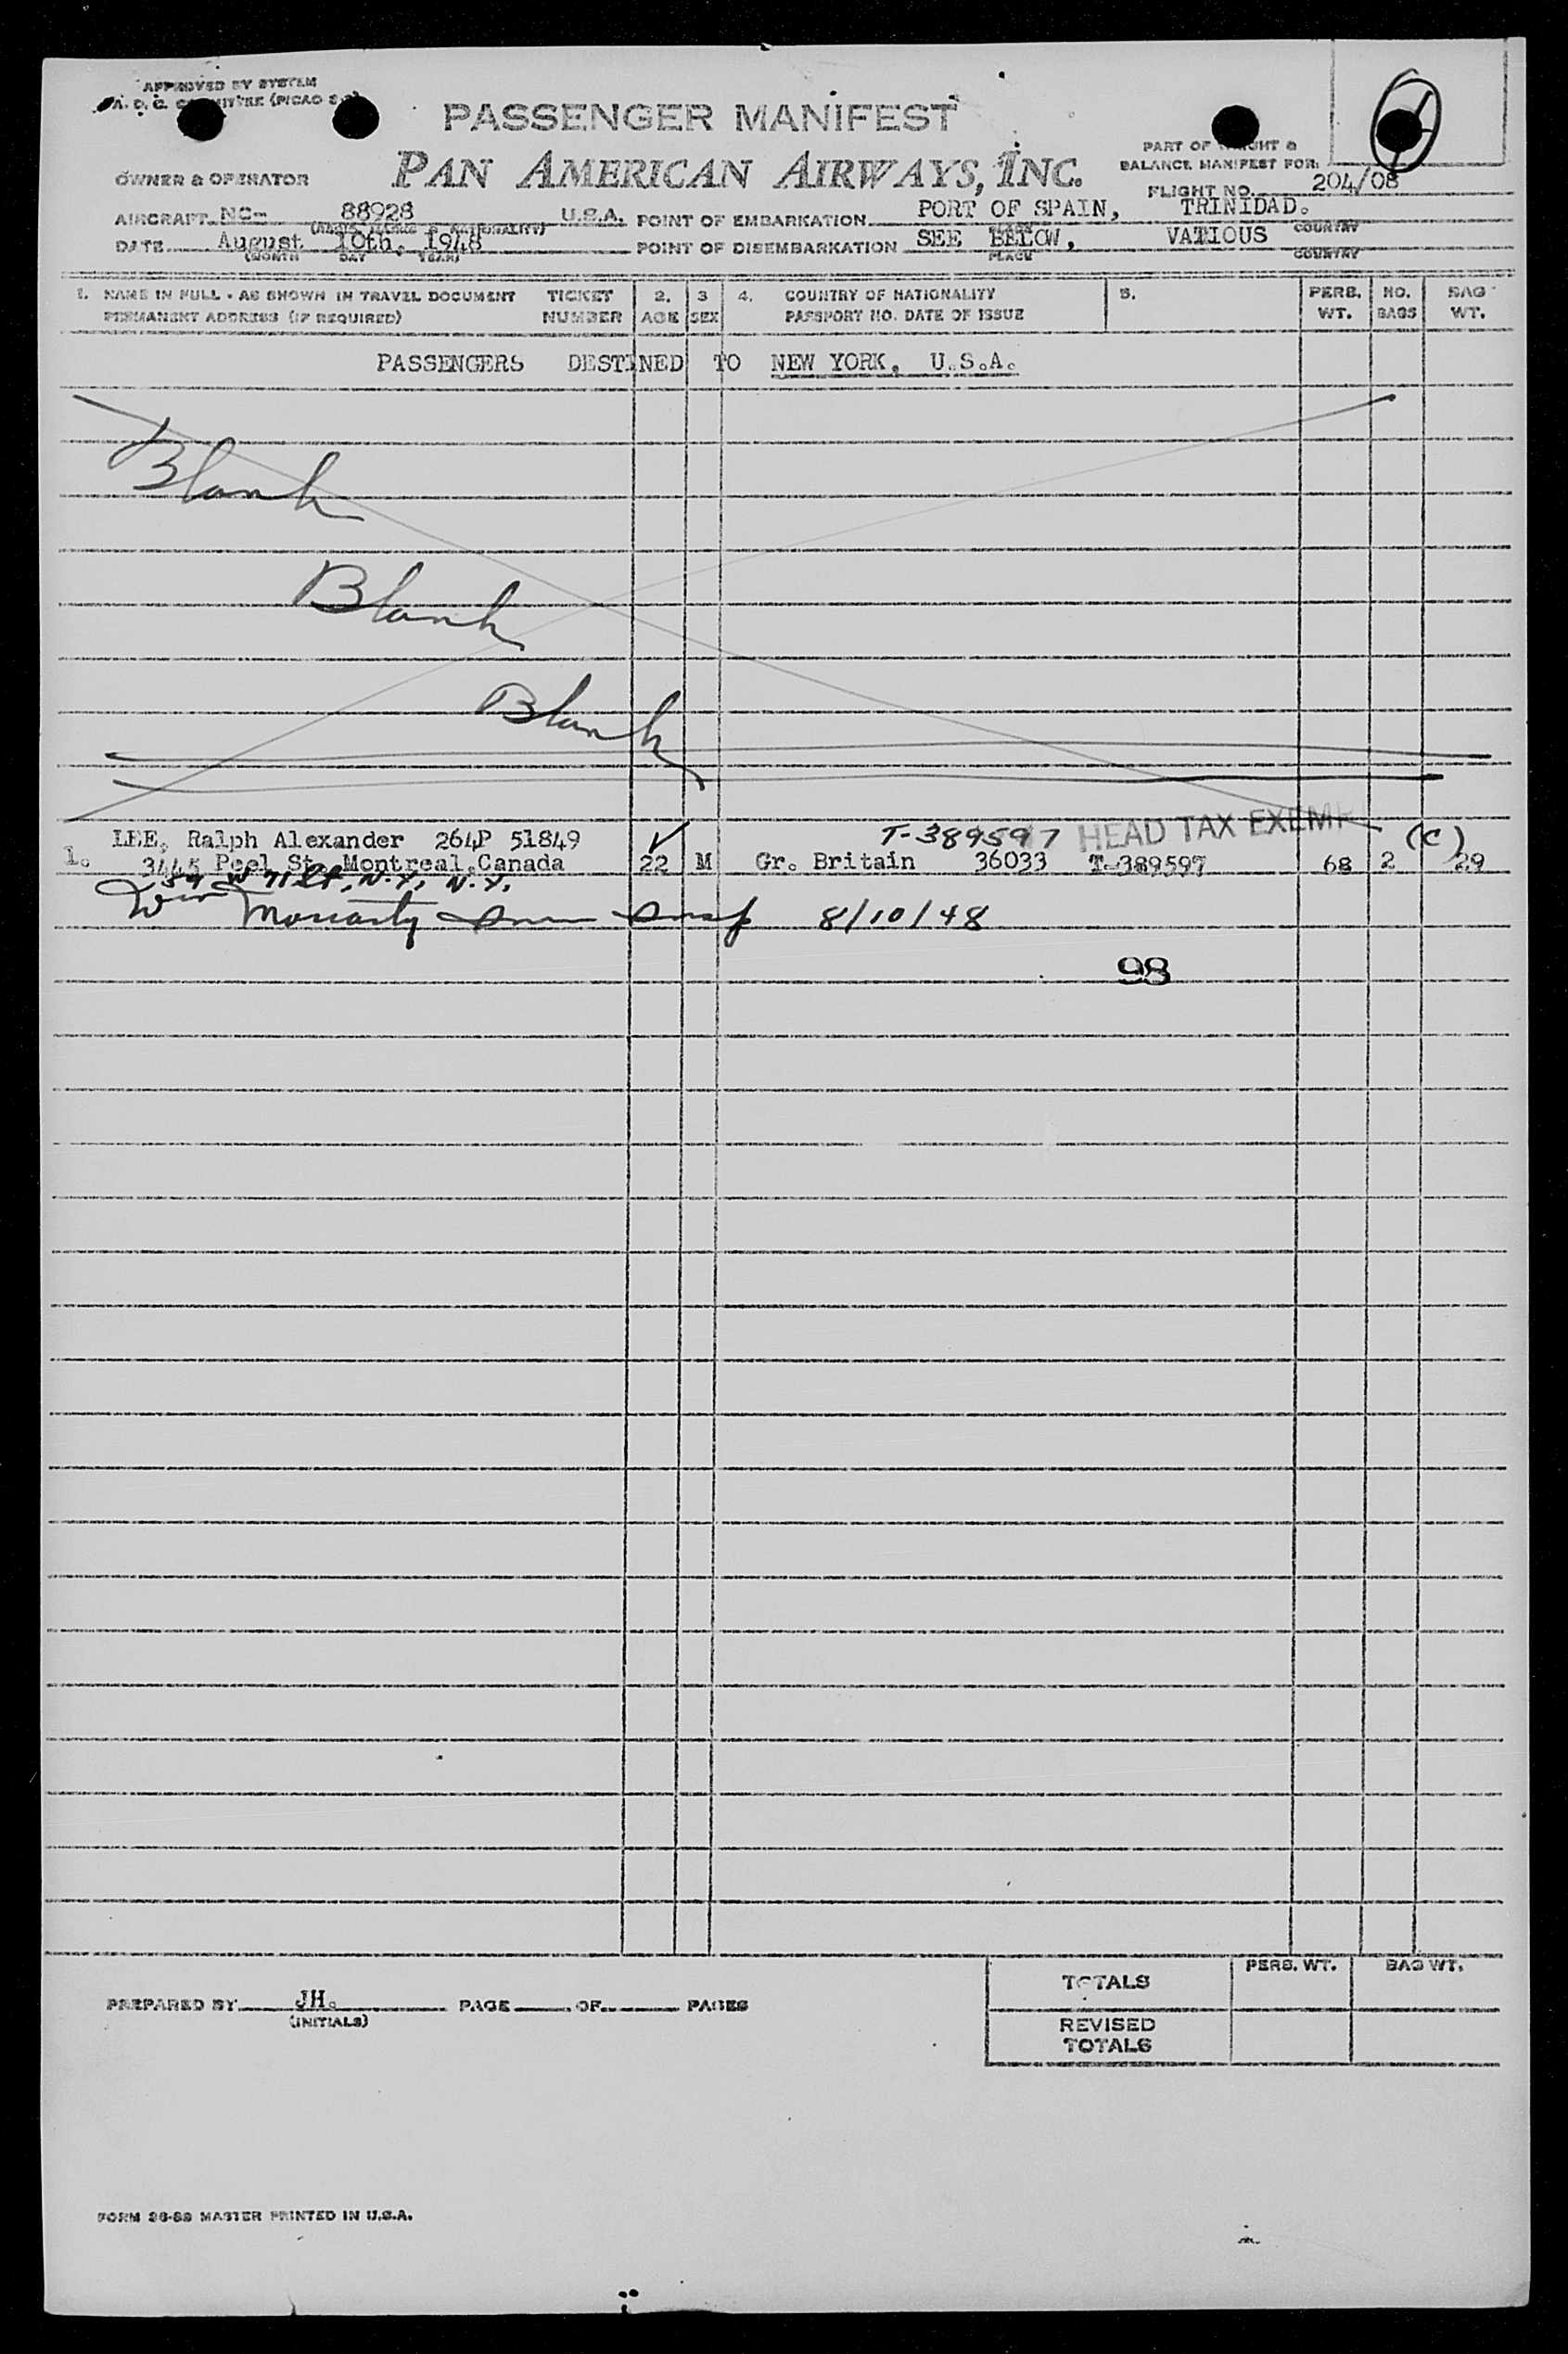 APPROVED BY SYSTEM
PASSENGER MANIFEST
PAN AMERICAN AIRWAYS, INC.
OWNER & OPERATOR
PART OF WEIGHT &
BALANCE MANIFEST FOR:
FLIGHT NO. 204/08
AIRCRAFT NC- 88928 U.S.A. POINT OF EMBARKATION PORT OF SPAIN, TRINIDAD.
PLACE COUNTRY
DATE August 10th, 1948 POINT OF DISEMBARKATION SEE BELOW, VATIOUS
(MONTH DAY YEAR) PLACE COUNTRY
1. NAME IN FULL - AS SHOWN IN TRAVEL DOCUMENT TICKET 2. 3 4. COUNTRY OF NATIONALITY 5. PERS. NO. BAG
PERMANENT ADDRESS (IF REQUIRED) NUMBER AGE SEX PASSPORT NO. DATE OF ISSUE WT. BAGS WT.
PASSENGERS DESTINED TO NEW YORK, U.S.A.
Blank
Blank
Blank
LEE, Ralph Alexander 264P 51849 T-389597 HEAD TAX EXEMP (C)
1. 3445 Peel St. Montreal, Canada 22 M Gr. Britain 36033 T-389597 68 2 29
54 W 71 St, N.Y, N.Y.
Moriarty 8/10/48
98
TOTALS PERS. WT. BAG WT.
PREPARED BY JH. PAGE OF PAGES
(INITIALS)
REVISED
TOTALS
FORM 36-89 MASTER PRINTED IN U.S.A.